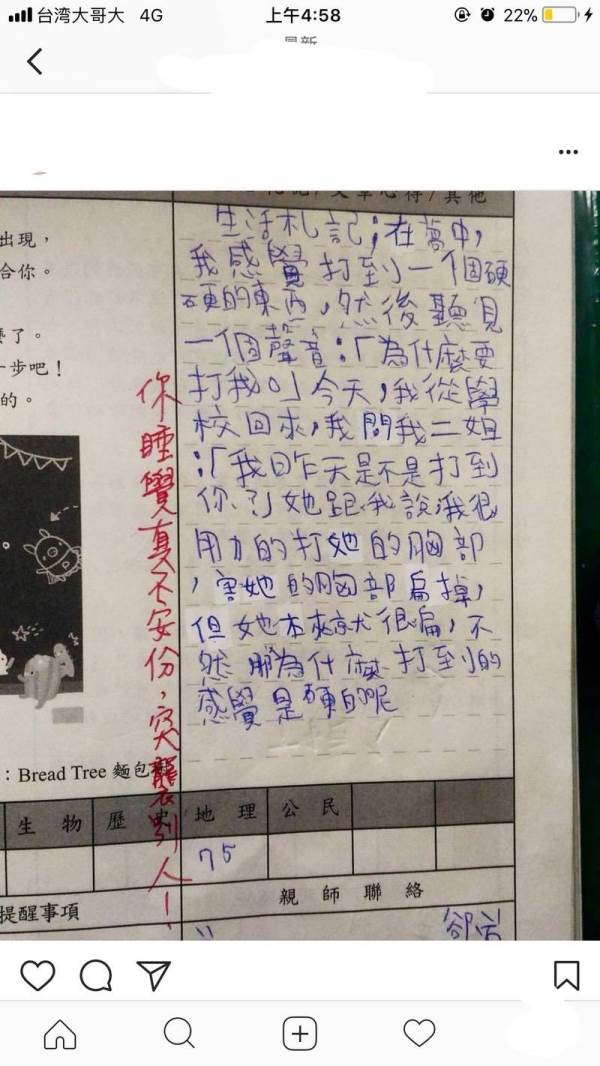 台湾大哥大 4G 上午4:58 22%
最新
出現，
合你。
麼了。
一步吧！
的。
生活札記；在夢中，
我感覺打到一個硬
硬的東西，然後聽見
一個聲音：「為什麼要
打我。」今天，我從學
校回來，我問我二姐
：「我昨天是不是打到
你？」她跟我說，我很
用力的打她的胸部
，害她的胸部扁掉，
但她本來就很扁，不
然那為什麼打到的
感覺是硬的呢
你睡覺真不安份，突襲別人！
：Bread Tree 麵包
生物 歷史 地理 公民
75
提醒事項
親師聯絡